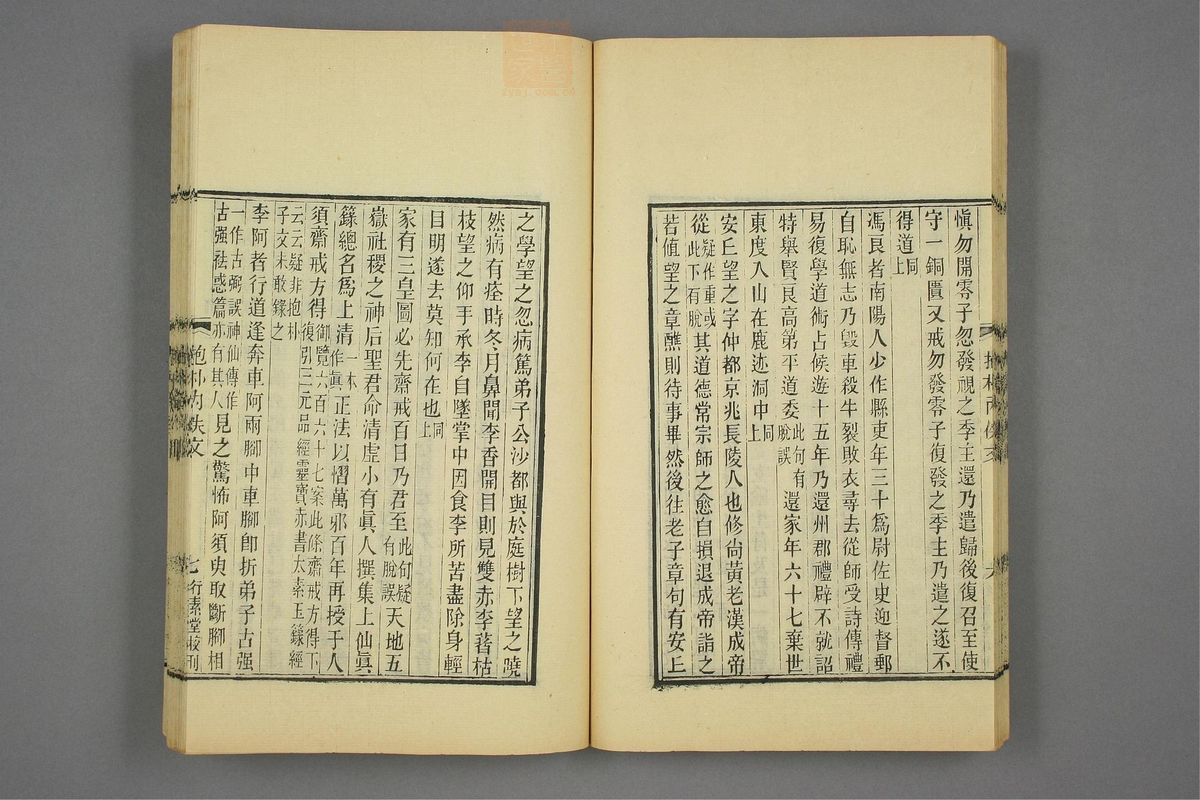 愼勿開零子忽發視之季主還乃遣歸後復召至使
守一銅匱又戒勿發零子復發之季主乃遣之遂不
得道同上
馮良者南陽人少作縣吏年三十爲尉佐史迎督郵
自恥無志乃毀車殺牛裂敗衣尋去從師受詩傳禮
易復學道術占候遊十五年乃還州郡禮辟不就詔
特舉賢良高第平道委此句有脫誤還家年六十七棄世
東度入山在鹿迹洞中同上
安丘望之字仲都京兆長陵人也修尙黃老漢成帝
從疑作重或此下有脫其道德常宗師之愈自損退成帝詣之
若値望之章醮則待事畢然後往老子章句有安丘
之學望之忽病篤弟子公沙都與於庭樹下望之曉
然病有痊時冬月鼻聞李香開目則見雙赤李著枯
枝望之仰手承李自墜掌中因食李所苦盡除身輕
目明遂去莫知何在也同上
家有三皇圖必先齋戒百日乃君至此句疑有脫誤天地五
嶽社稷之神后聖君命清虛小有眞人撰集上仙眞
籙總名爲上清一本作眞正法以慴萬邪百年再授于人
須齋戒方得御覽六百六十七案此條齋戒方得下復引三元品經靈寶赤書太素玉籙經
云云疑非抱朴子文未敢錄之
李阿者行道逢奔車阿兩腳中車腳卽折弟子古强
一作古弼誤神仙傳作古强祛惑篇亦有其人見之驚怖阿須臾取斷腳相
抱朴內佚文
七
行素堂校刊